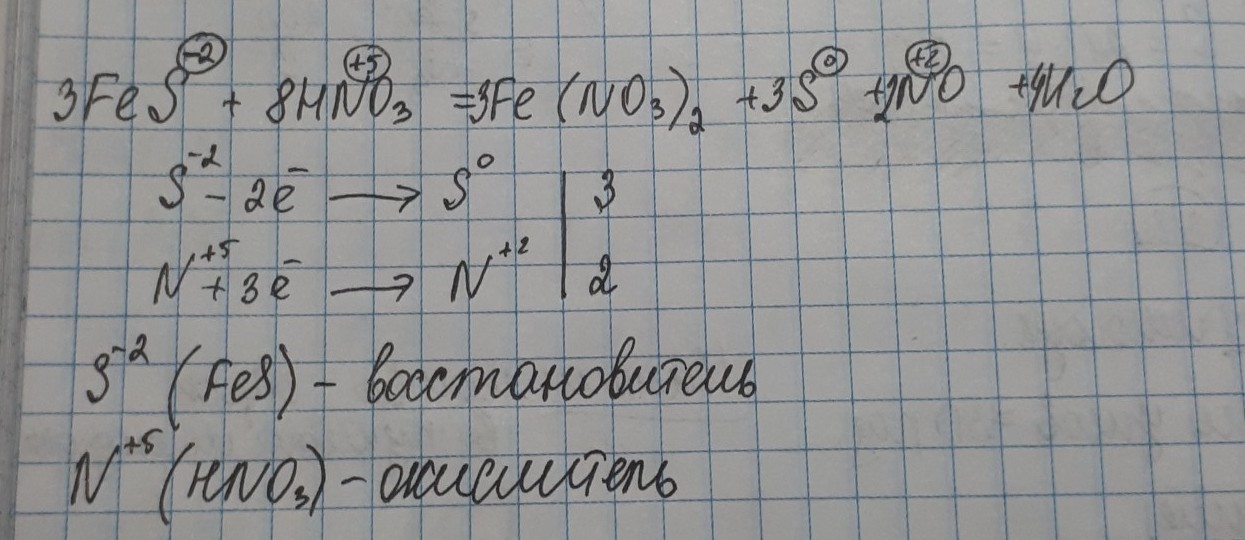 3FeS⁻² + 8HN⁺⁵O₃ = 3Fe(NO₃)₂ + 3S⁰ + 2N⁺²O + 4H₂O
S⁻² - 2e⁻ → S⁰ | 3
N⁺⁵ + 3e⁻ → N⁺² | 2
S⁻² (FeS) - восстановитель
N⁺⁵ (HNO₃) - окислитель